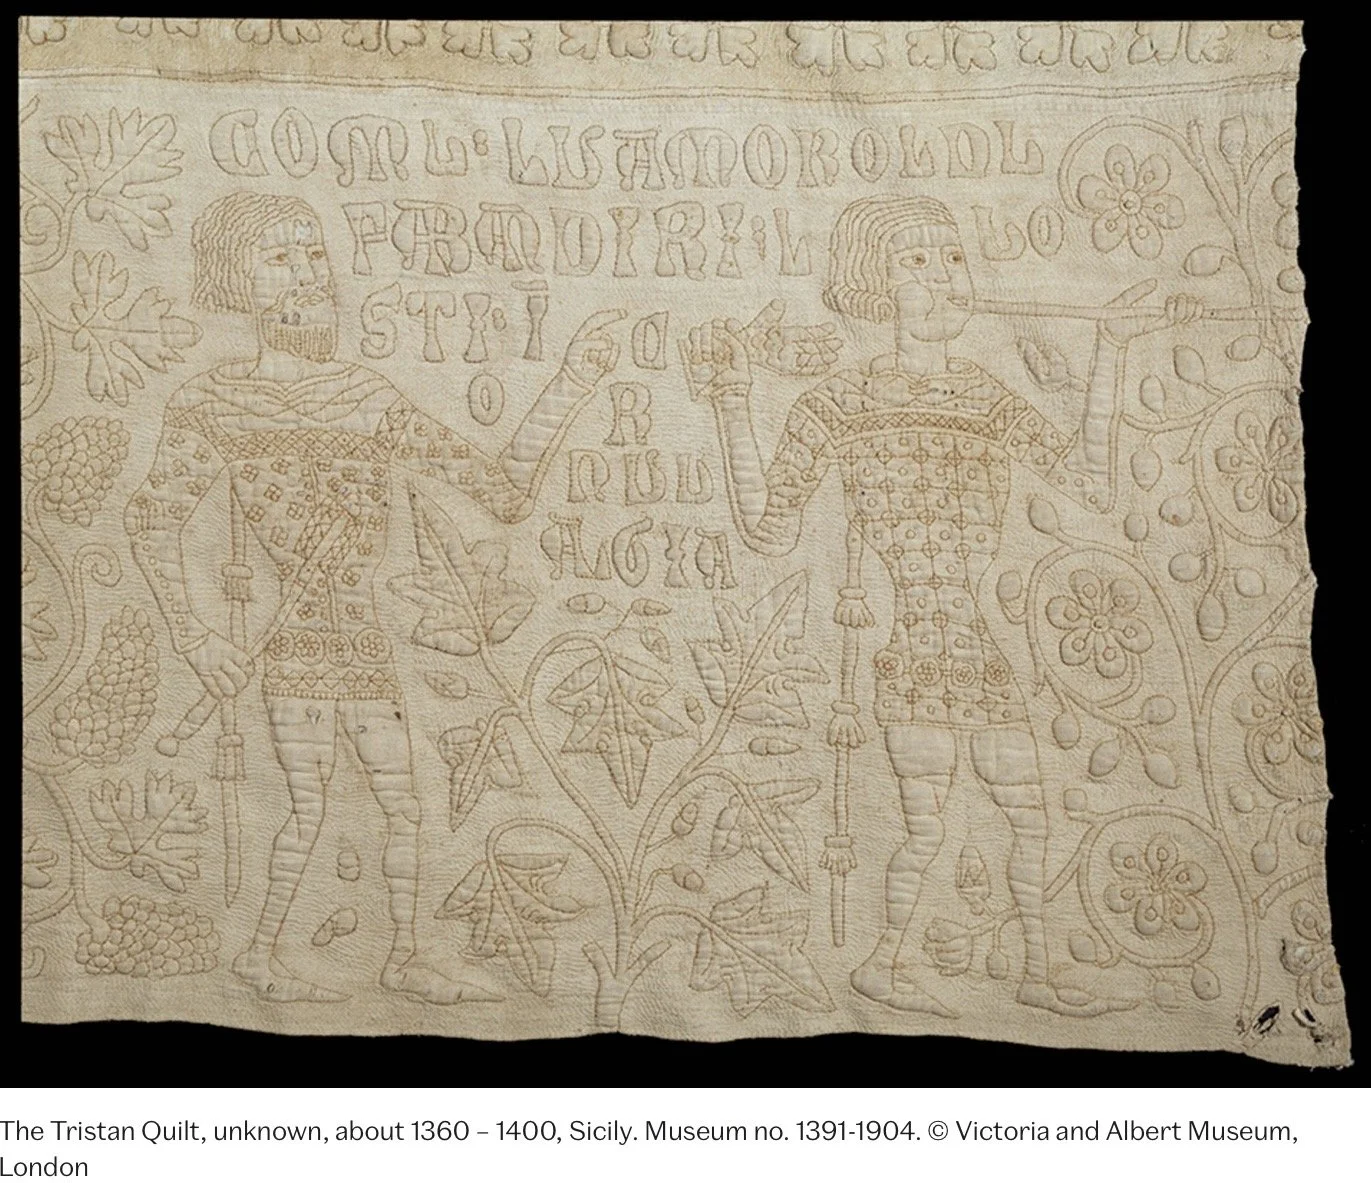 COMU: LU AMOROLDU
FA BANDIRI: LU O
STI: Ī C
O R
NUU
ALGIA
The Tristan Quilt, unknown, about 1360 – 1400, Sicily. Museum no. 1391-1904. © Victoria and Albert Museum,
London